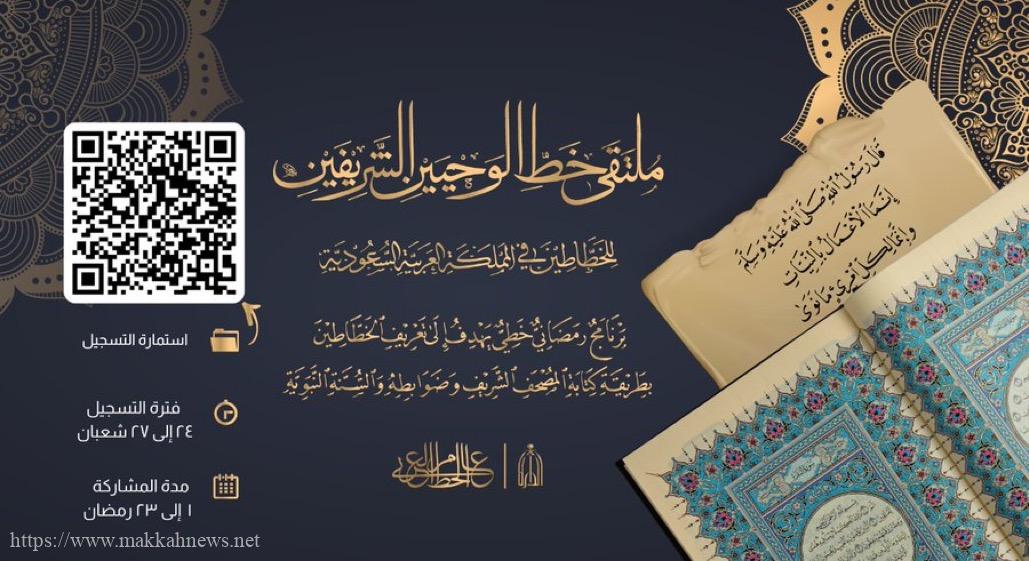 ملتقى خط الوحيين الشريفين
للخطاطين في المملكة العربية السعودية
برنامج رمضاني خطي يهدف إلى تعريف الخطاطين
بطريقة كتابة المصحف الشريف وضوابطه والسنة النبوية
استمارة التسجيل
فترة التسجيل
٢٤ إلى ٢٧ شعبان
مدة المشاركة
١ إلى ٢٣ رمضان
قال رسول الله صلى الله عليه وسلم
إنما الأعمال بالنيات
وإنما لكل امرئ ما نوى
عام الخط العربي
https://www.makkahnews.net